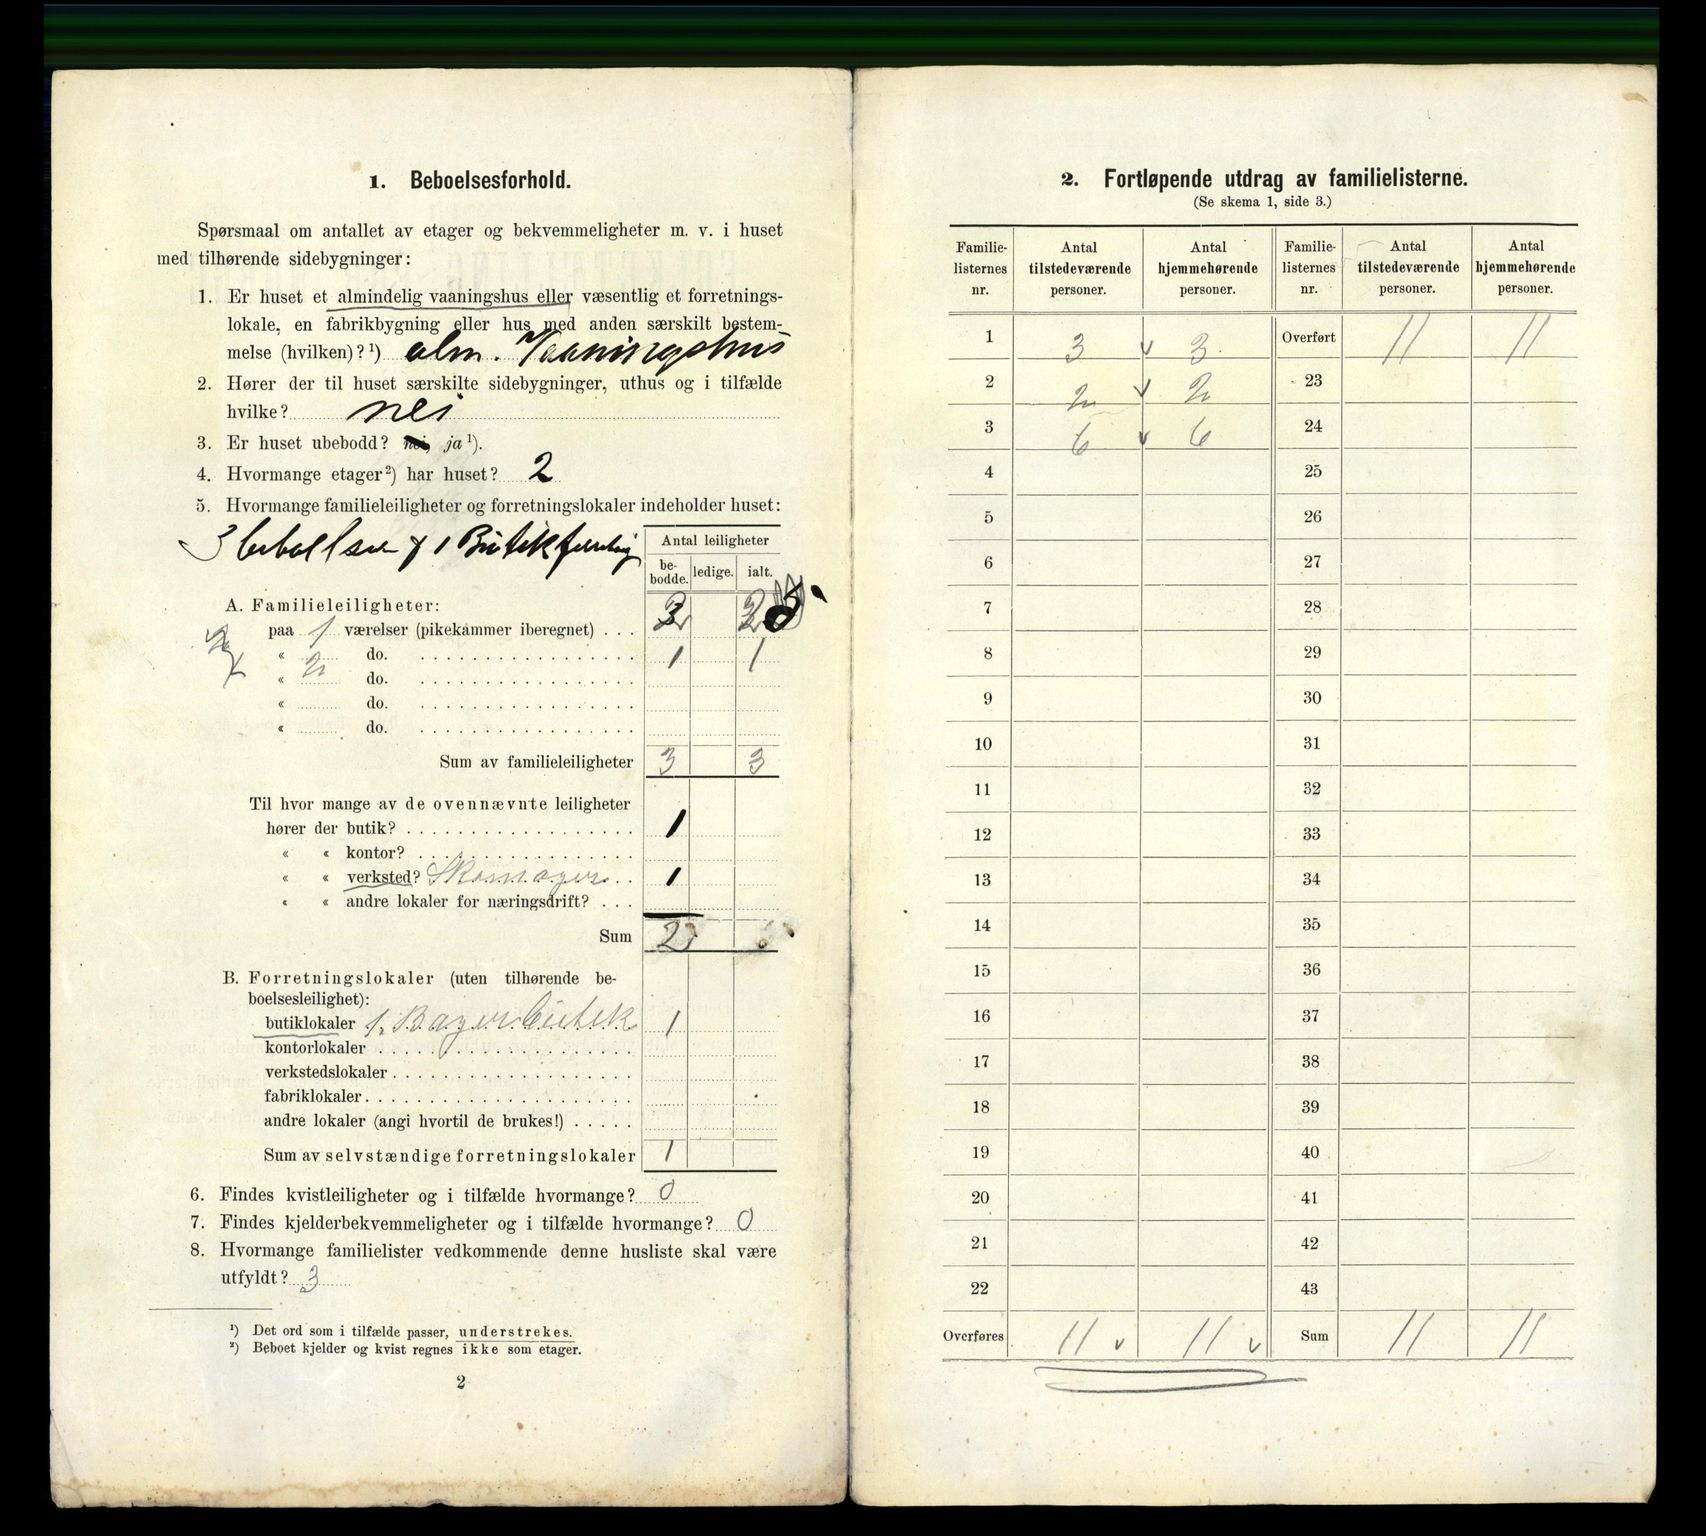 1. Beboelsesforhold.
Spørsmaal om antallet av etager og bekvemmeligheter m. v. i huset
med tilhørende sidebygninger:
1. Er huset et almindelig vaaningshus eller væsentlig et forretnings-
lokale, en fabrikbygning eller hus med anden særskilt bestem-
melse (hvilken)? ¹) alm. Vaaningshus
2. Hører der til huset særskilte sidebygninger, uthus og i tilfælde
hvilke? nei
3. Er huset ubebodd? nei, ja ¹).
4. Hvormange etager ²) har huset? 2
5. Hvormange familieleiligheter og forretningslokaler indeholder huset:
3 1 Butik
Antal leiligheter
be-
bodde. ledige. ialt.
A. Familieleiligheter:
paa 1 værelser (pikekammer iberegnet) . . . 2 2
« 2 do. 1 1
« do.
« do.
« do.
Sum av familieleiligheter 3 3
Til hvor mange av de ovennævnte leiligheter
hører der butik? 1
« « kontor?
« « verksted? Skomager 1
« « andre lokaler for næringsdrift? . . .
Sum 2
B. Forretningslokaler (uten tilhørende be-
boelsesleilighet):
butiklokaler 1. Bager butik 1
kontorlokaler
verkstedslokaler
fabriklokaler
andre lokaler (angi hvortil de brukes!)
Sum av selvstændige forretningslokaler 1
6. Findes kvistleiligheter og i tilfælde hvormange? 0
7. Findes kjelderbekvemmeligheter og i tilfælde hvormange? 0
8. Hvormange familielister vedkommende denne husliste skal være
utfyldt? 3
¹) Det ord som i tilfælde passer, understrekes.
²) Beboet kjelder og kvist regnes ikke som etager.
2
2. Fortløpende utdrag av familielisterne.
(Se skema 1, side 3.)
Familie- Antal Antal Familie- Antal Antal
listernes tilstedeværende hjemmehørende listernes tilstedeværende hjemmehørende
nr. personer. personer. nr. personer. personer.
1 3 v 3 Overført 11 11
2 2 v 2 23
3 6 v 6 24
4 25
5 26
6 27
7 28
8 29
9 30
10 31
11 32
12 33
13 34
14 35
15 36
16 37
17 38
18 39
19 40
20 41
21 42
22 43
Overføres 11 v 11 v Sum 11 11